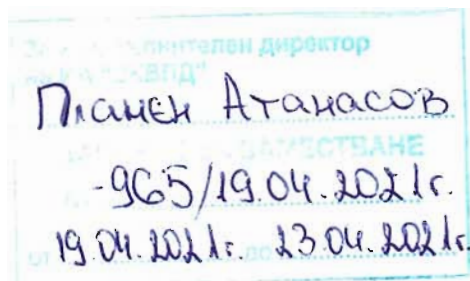 директор
Пламен Атанасов
ЗАМЕСТВАНЕ
-965/19.04.2021г.
от 19.04.2021г. до 23.04.2021г.